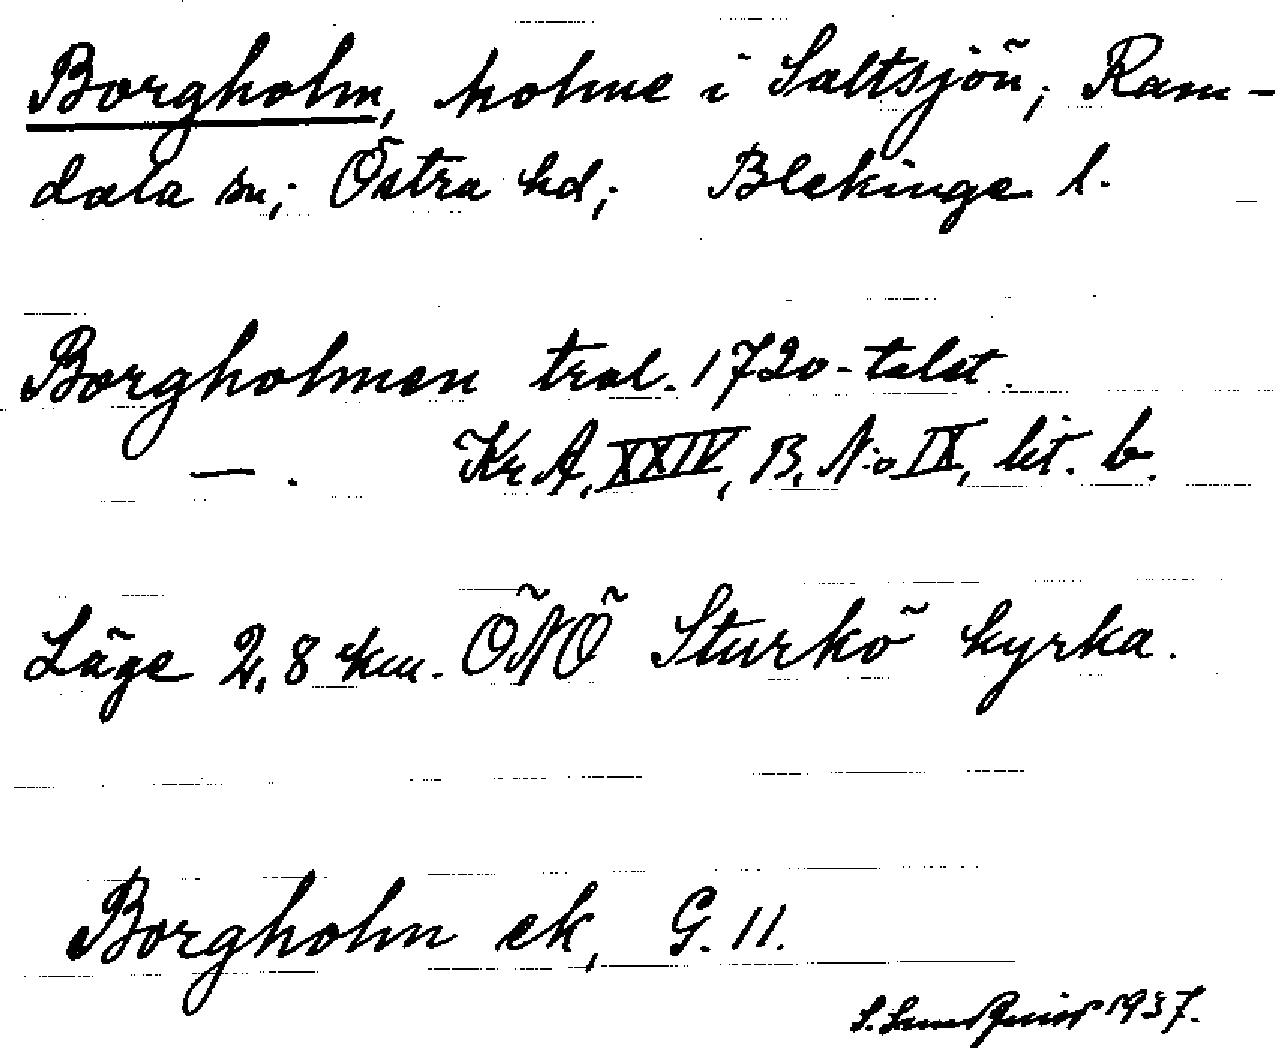 Borgholm, holme i Saltsjön; Ram-
dala sn; Östra hd; Blekinge l.
Borgholmen trol. 1720-talet.
—. KrA, XXIV, B, N:o IX, lit. b.
Läge 2,8 km. ÖNÖ Sturkö kyrka.
Borgholm ek, G. 11.
S. Lundquist 1937.